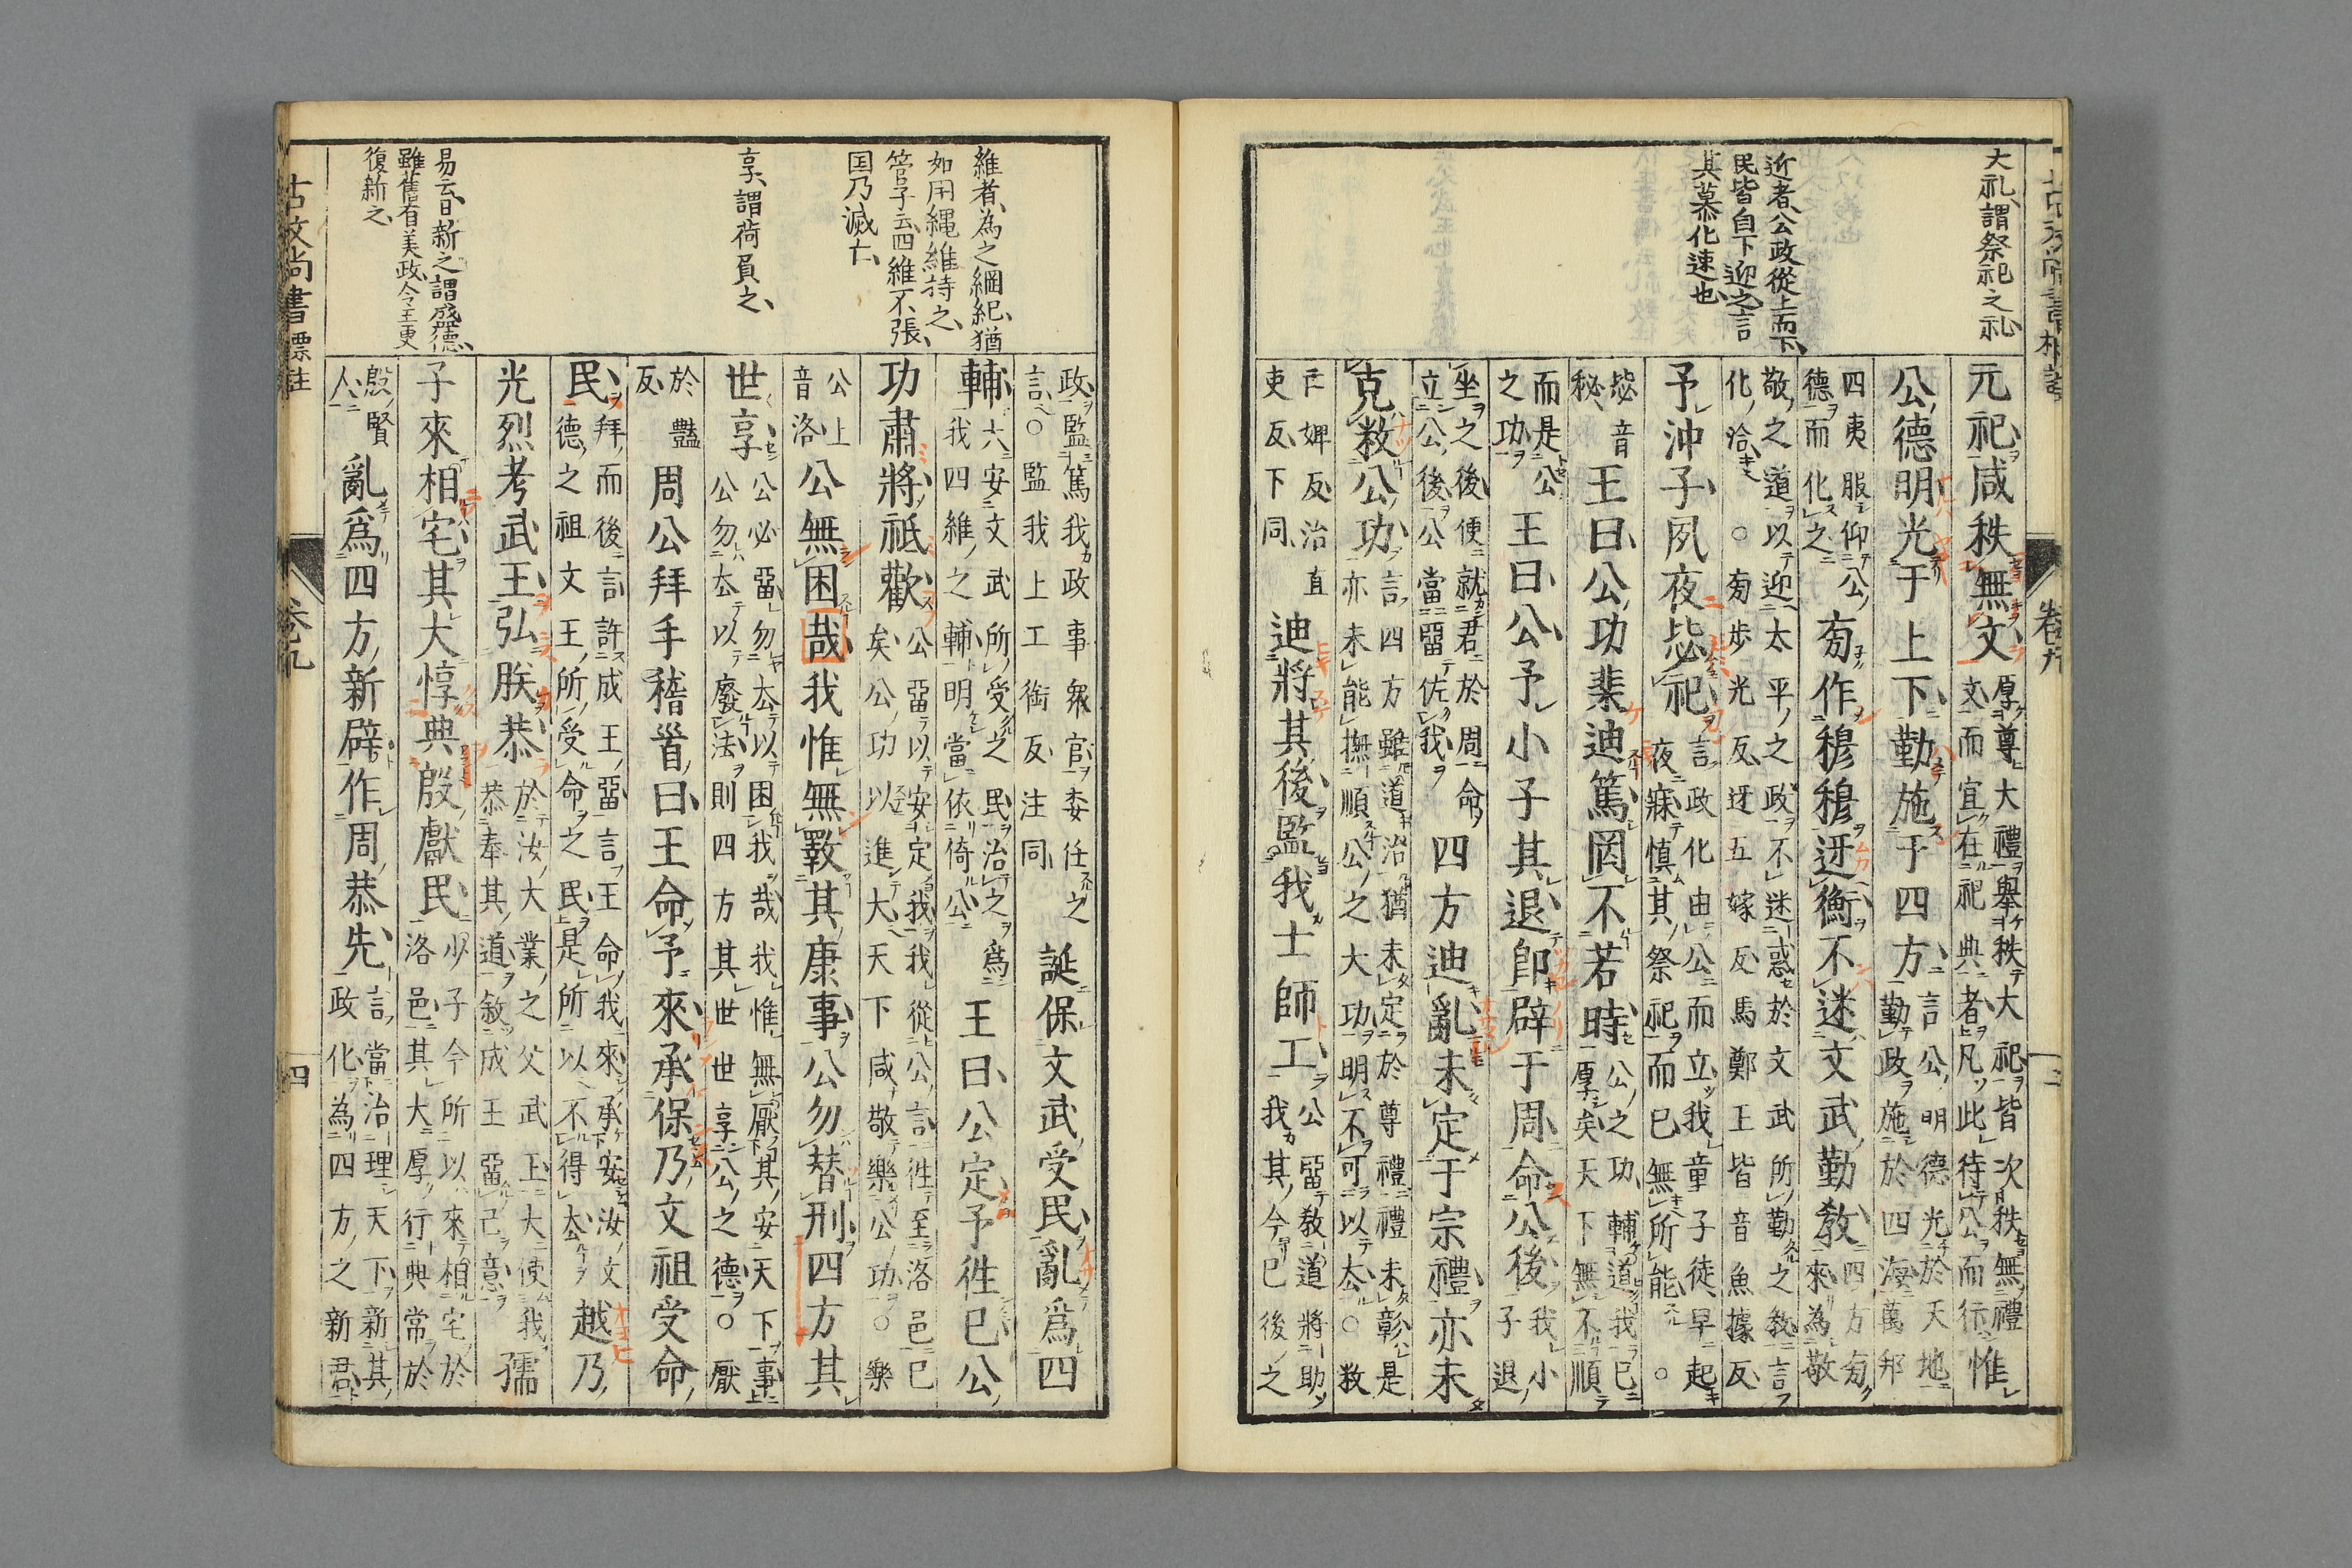 大礼、謂祭祀之礼、
近者、公政從上而下、
民皆自下迎之、言
其慕化速也、
元祀咸秩無文厚尊大禮舉秩大祀皆次秩無禮文而宜在祀典者凡此待公而行惟
公德明光于上下勤施于四方言公明德光於天地勤政施於四海萬邦
四夷服仰公德而化之旁作穆穆迓衡不迷文武勤敎四方旁來為敬
敬之道以迎太平之政不迷惑於文武所勤之敎言化洽○旁步光反迓五嫁反馬鄭王皆音魚據反
予沖子夙夜毖祀言政化由公而立我童子徒早起夜寐慎其祭祀而已無所能○
毖音秘王曰公功棐迪篤罔不若時公之功輔道我已厚矣天下無不順
而是公之功王曰公予小子其退卽辟于周命公後我小子退
坐之後便就君於周命立公後公當畱佐我四方迪亂未定于宗禮亦未
克敉公功言四方雖道治猶未定於尊禮禮未彰是亦未能撫順公之大功明不可以去○敉
亡婢反治直吏反下同迪將其後監我士師工公畱敎道將助我其今已後之
卷九
維者、為之綱紀、猶
如用縄維持之、
管子云、四維不張、
国乃滅亡、
享、謂荷負之、
易云、日新之謂盛徳、
雖舊有美政、今王更
復新之、
政監篤我政事衆官委任之言○監我上工銜反注同誕保文武受民亂爲四
輔大安文武所受之民治之為我四維之輔明當依倚公王曰公定予徃已公
功肅將祗歡公畱以安定我我從公言徃至洛邑已矣公功以進大天下咸敬樂公功○樂
公上音洛公無困哉我惟無斁其康事公勿替刑四方其
世享公必畱勿去以困我哉我惟無厭其安天下事公勿去以廢法則四方其世世享公之德○厭
於豔反周公拜手稽首曰王命予來承保乃文祖受命
民拜而後言許成王畱言王命我來承安汝文德之祖文王所受命之民是所以不得去越乃
光烈考武王弘朕恭於汝大業之父武王大使我恭奉其道敘成王畱己意孺
子來相宅其大惇典殷獻民少子今所以來相宅於洛邑其大厚行典常於
殷賢人亂爲四方新辟作周恭先言當治理天下新其政化為四方之新君
古文尚書標註
卷九
四